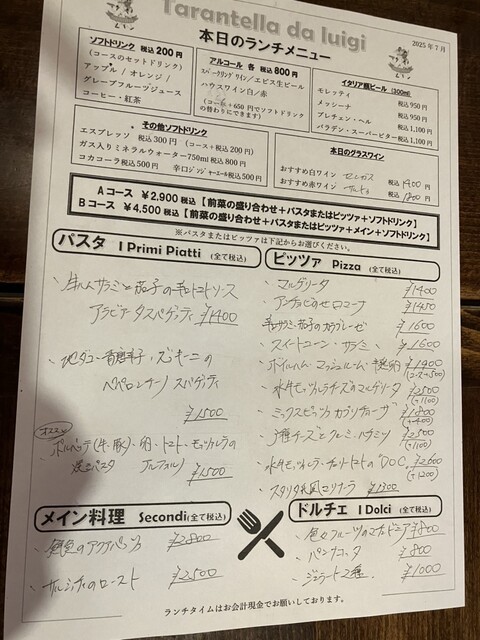 Tarantella da luigi
本日のランチメニュー
2025年7月
ソフトドリンク 税込200円
(コースのセットドリンク)
アップル / オレンジ /
グレープフルーツジュース
コーヒー・紅茶
アルコール 各 税込800円
スパークリングワイン/エビス生ビール
ハウスワイン白/赤
(コース+650円でソフトドリンクの替わりにできます)
イタリア瓶ビール (300ml)
モレッティ 税込950円
メッシーナ 税込950円
プレチェン・ヘル 税込1,100円
バラデン・スーパービター 税込1,100円
その他ソフトドリンク
エスプレッソ 税込300円 (コース+税込200円)
ガス入りミネラルウォーター750ml 税込800円
コカコーラ税込500円 辛口ジンジャーエール税込500円
本日のグラスワイン
おすすめ白ワイン 税込
おすすめ赤ワイン 税込
Aコース ¥2,900 税込【前菜の盛り合わせ+パスタまたはピッツァ+ソフトドリンク】
Bコース ¥4,500 税込【前菜の盛り合わせ+パスタまたはピッツァ+メイン+ソフトドリンク】
※パスタまたはピッツァは下記からお選びください。
パスタ I Primi Piatti (全て税込)
アラビアータスパゲッティ ¥1400
ズッキーニの
ペペロンチーノ スパゲッティ
¥1500
オススメ
ポルペッテ(牛・豚)・卵・トマト・モッツァレラの
¥1500
ピッツァ Pizza (全て税込)
・マルゲリータ ¥1400
¥1450
¥1600
・スイートコーン・サラミ ¥1600
¥1900
(コース+500)
・水牛モッツァレラチーズのマルゲリータ ¥2500
(+1100)
・ミックスピッツァ カプリチョーザ ¥1800
(+400)
¥2500
(+1100)
"DOC" ¥2600
(+1200)
マリナーラ ¥1300
メイン料理 Secondi (全て税込)
・鮮魚のアクアパッツァ ¥2800
・サルシッチャのロースト ¥2500
ドルチェ I Dolci (全て税込)
・色々フルーツのマチェドニア ¥800
・パンナコッタ ¥800
・ジェラート2種 ¥1000
ランチタイムはお会計現金でお願しております。